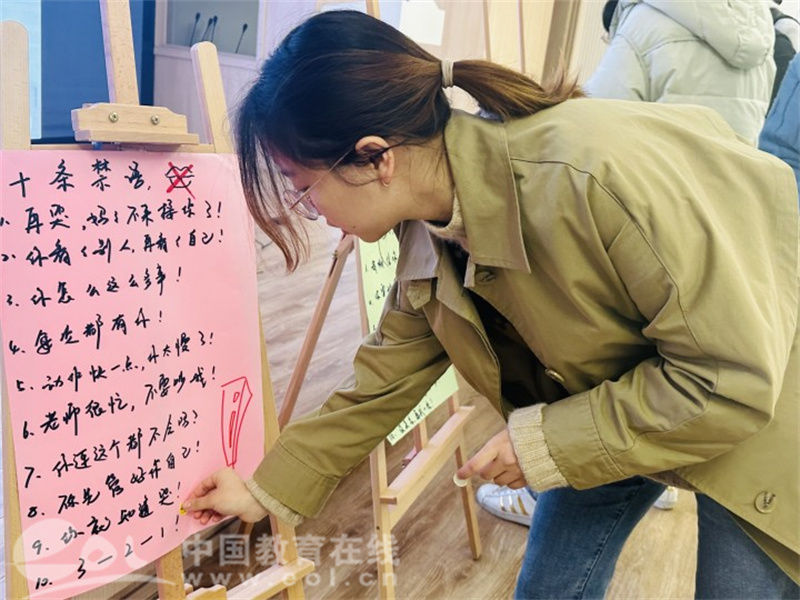 十条禁语
1. 再哭，妈妈不来接你了！
2. 你看看别人，再看看自己！
3. 你怎么这么多事！
4. 每次都有你！
5. 动作快一点，你太慢了！
6. 老师很忙，不要吵我！
7. 你连这个都不会吗？
8. 你先管好你自己！
9. 你就知道哭！
10. 3－2－1！
中国教育在线
eol.cn